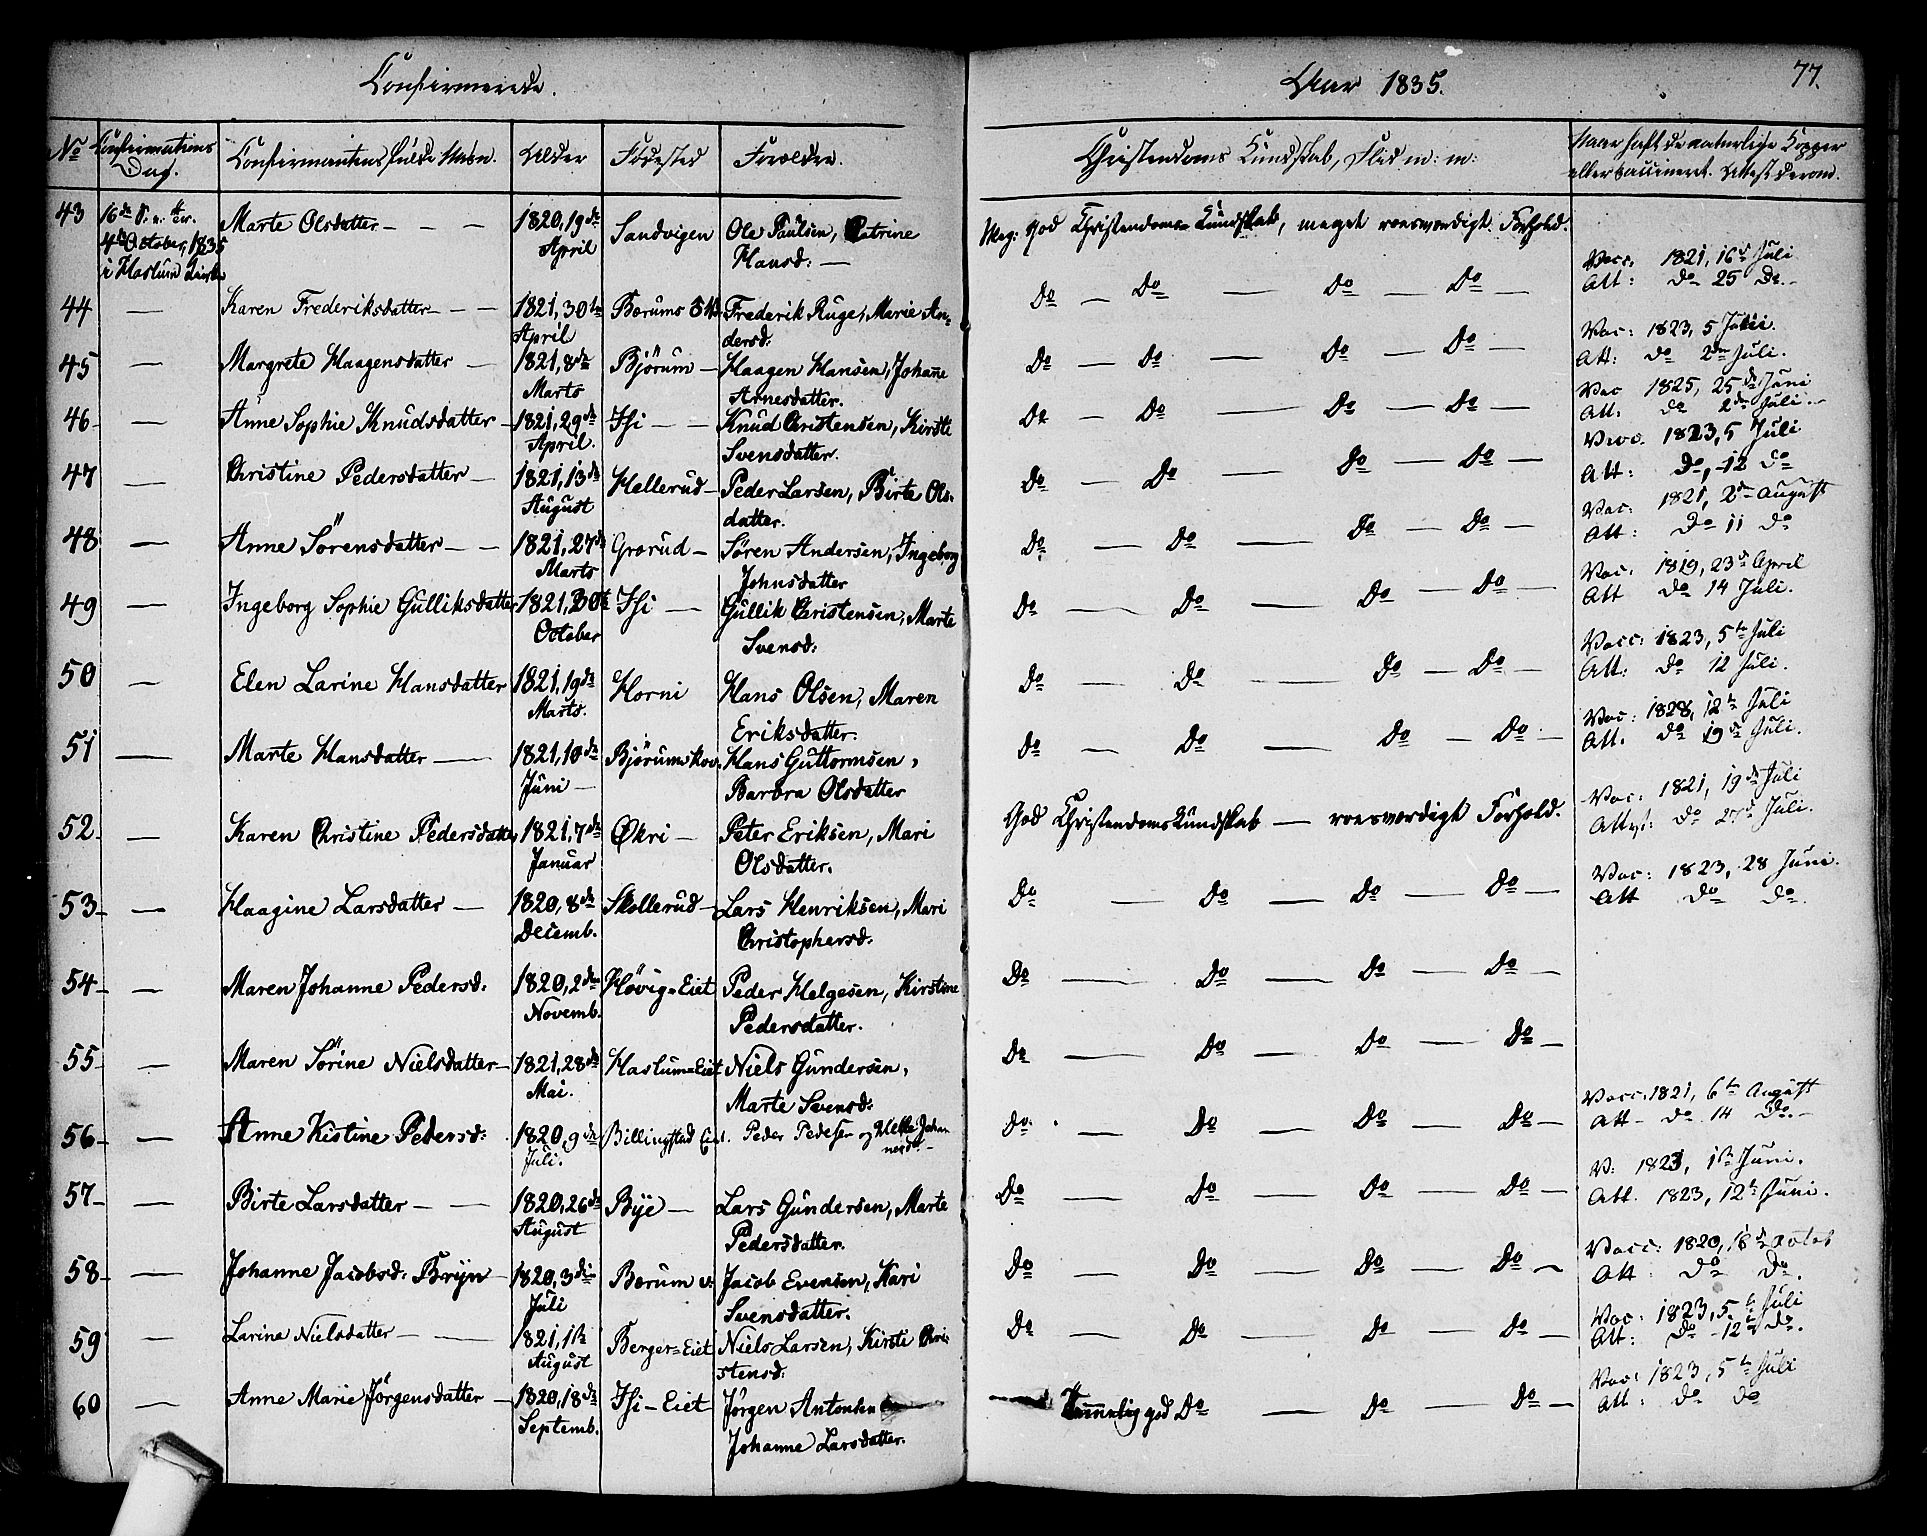 Confirmerede.
Aar 1835.
77.
No Confirmations Dag. Confirmantens fulde Navn. Alder Fødested Forældre. Christendoms Kundskab, Flid m: m: Naar havt de naturlige Kopper
eller vaccineret. Attest derom.
43 16de S. e. Tr. Marte Olsdatter — — — 1820, 19de Sandvigen Ole Paulsen, Catrine Meg: God Christendoms Kundskab, meget roesværdigt Forhold.
4de October, 1835 April Hansd: — Vacc. 1821, 16de Juli
i Haslum Kirke Att: do 25 Do.
44 — Karen Frederiksdatter — — 1821, 30te Bærums V. Frederik Ruge, Marie An- Do — Do — Do — Do —
April dersd: Vac: 1823, 5 Juli.
Att: do 2den Juli.
45 — Margrete Haagensdatter — 1821, 8de Bjørum — Haagen Hansen, Johane Do — Do — Do — Do —
Marts Arnesdatter. Vac 1825, 25de Juni
Att. do 2den Juli.
46 — Anne Sophie Knudsdatter — 1821, 29de Isi — — Knud Christensen, Kirsti Do — Do — Do — Do —
April. Svensdatter. Vacc. 1823, 5 Juli
Att: Do, 12 do
47 — Christine Pedersdatter — 1821, 13de Hellerud — Peder Larsen, Birte Ols- Do — Do — Do — Do —
August datter. Vac: 1821, 2den August
Att: Do 11 do
48 — Anne Sørensdatter — — 1821, 27de Grorud — Søren Andersen, Ingeborg Do — Do — Do — Do —
Marts Johnsdatter Vac. 1819, 23de April
Att do 14 Juli.
49 — Ingeborg Sophie Gulliksdatter 1821, 30te Isi — Gullik Christensen, Marte Do — Do — Do — Do —
October Svensd: Vacc: 1823, 5te Juli
Att: do 12 Juli.
50 — Elen Larine Hansdatter 1821, 19de Horni Hans Olsen, Maren Do — Do — Do — Do —
Marts. Eriksdatter. Vac: 1828, 12te Juli
Att. do 19de Juli.
51 — Marte Hansdatter — 1821, 10de Bjørumskov. Hans Guttormsen, Do — Do — Do — Do —
Juni — Barbra Olsdatter Vac: 1821, 19de Juli
Attest: do 27de Juli.
52 — Karen Christine Pedersdatter 1821, 7de Økri — Peter Eriksen, Mari God Christendoms Kundskab — roesværdigt Forhold.
Januar Olsdatter. Vac: 1823, 28 Juni.
Att do do.
53 — Haagine Larsdatter — 1820, 8de Skollerud — Lars Henriksen, Mari Do — Do — Do — Do —
Decemb. Christophersd:
54 — Maren Johanne Pedersd: 1820, 2den Høvig=Eiet Peder Helgesen, Kirstine Do — Do — Do — Do —
Novemb. Pedersdatter.
55 — Maren Sørine Nielsdatter — 1821, 28de Haslum=Eiet Niels Gundersen, Do — Do — Do — Do —
Mai. Marte Svensd: Vacc. 1821, 6te August
Att — do 14 Do. —
56 — Anne Kistine Pedersd: 1820 9de Billingstad Eiet. Peder Pedersen og Do — Do — Do — Do —
Juli. V: 1823, 1ste Juni.
Att. 1823, 12te Juni.
57 — Birte Larsdatter — — 1820, 26de Bye — Lars Gundersen, Marte Do — Do — Do — Do —
August Pedersdatter. Vacc: 1820, 18de Octob
Att: do do.
58 — Johanne Jacobsd: Bryn — 1820, 3die Bærum v: Jacob Evensen, Kari Do — Do — Do — Do —
Juli Svensdatter. Vac: 1823, 5te Juli
Att: do 12te do.
59 — Larine Nielsdatter — — 1821, 1ste Berger=Eiet Niels Larsen, Kirsti Chri- Do — Do — Do — Do —
August stensd: Vac: 1823, 5te Juli
Att: do do
60 — Anne Marie Jørgensdatter — 1820, 18de Isi — Eiet Jørgen Antonsen Temmelig god Do — Do — Do —
Septemb. Johanne Larsdatter.